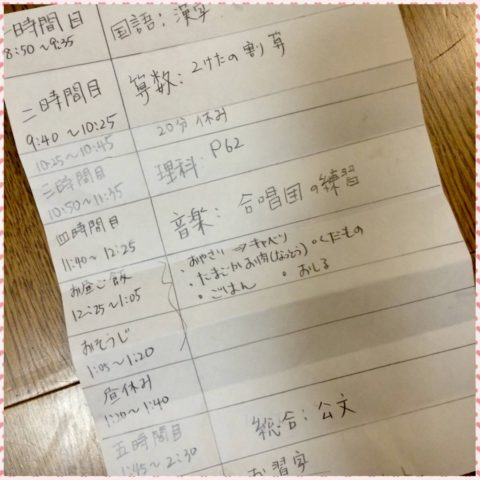 一時間目 国語:漢字
8:50~9:35
二時間目 算数:2けたの割算
9:40~10:25
10:25~10:45 20分休み
三時間目 理科:P62
10:50~11:35
四時間目 音楽:合唱団の練習
11:40~12:25
お昼ご飯 ・おやさい→キャベツ ・くだもの
12:25~1:05 ・たまごかお肉(なっとう)
・ごはん ・おしる
おそうじ
1:05~1:20
昼休み
1:20~1:40
五時間目 総合:公文
1:45~2:30
お習字